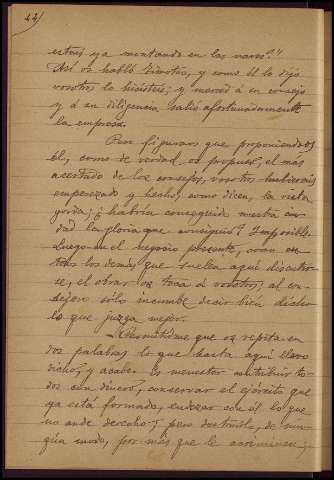 22)
estais ya montando en las naves?"
Así os habló Timoteo, y como él lo dijo
vosotros lo hicisteis; y merced á su consejo
y á su diligencia salió afortunadamente
la empresa.
Pero figuraos que proponiendoos
él, como de verdad, os propuso, el más
acertado de los consejos, vosotros hubierais
emperezado y hecho, como dicen, la vista
gorda; ¿habría conseguido nuestra ciu-
dad la gloria que consiguió? Imposible.
Luego en el negocio presente, como en
todos los demás que suelen aquí discutir-
se, el obrar os toca á vosotros; al con-
sejero sólo incumbe decir bien dicho
lo que juzga mejor.
Permitidme que os repita en
dos palabras lo que hasta aquí llevo
dicho, y acabo. Es menester contribuir to-
dos con dinero, conservar el ejército que
ya está formado, enderezar con él lo que
no ande derecho; pero destruirlo, de nin-
gún modo, por más que le acriminen;